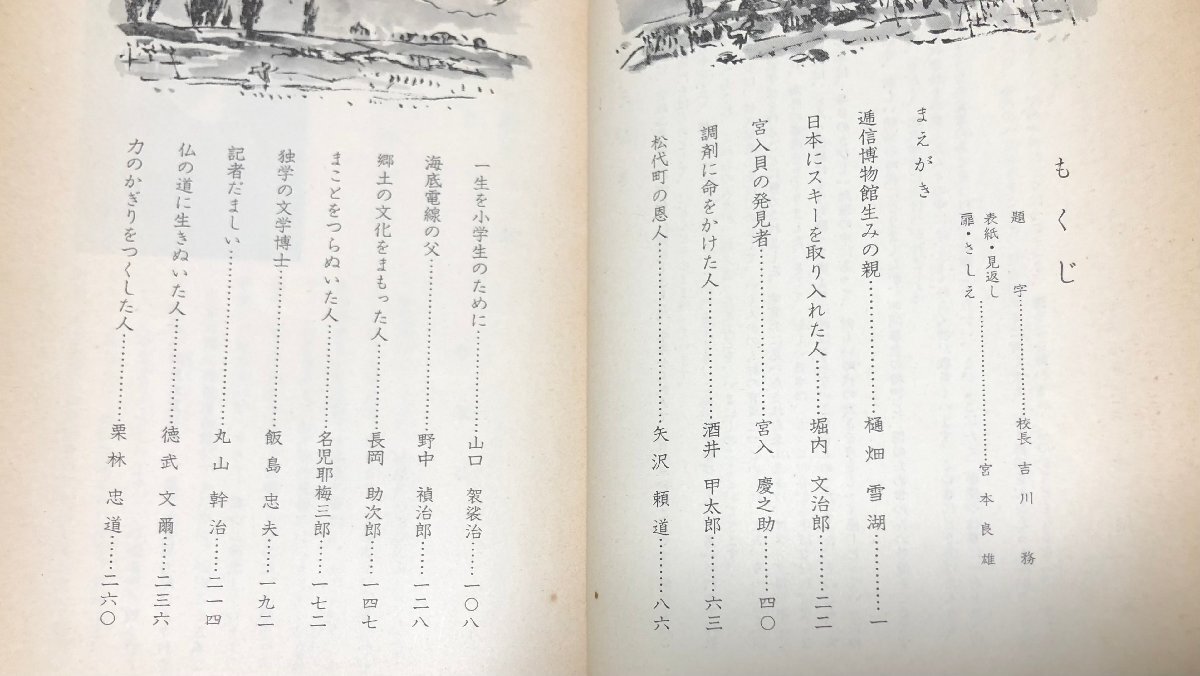 もくじ
題字……………………校長 吉川 務
表紙・見返し
扉・さしえ……………………宮本良雄
まえがき
逓信博物館生みの親……………樋畑雪湖…………一
日本にスキーを取り入れた人………堀内 文治郎………二二
宮入貝の発見者……………………宮入 慶之助………四〇
調剤に命をかけた人………………酒井 甲太郎………六三
松代町の恩人………………………矢沢 頼道………八六
一生を小学生のために……………山口 袈裟治……一〇八
海底電線の父……………………野中 禎治郎……一二八
郷土の文化をまもった人…………長岡 助次郎……一四七
まことをつらぬいた人……………名児耶梅三郎……一七二
独学の文学博士……………………飯島忠夫……一九二
記者だましい……………………丸山幹治……二一四
仏の道に生きぬいた人……………徳武文爾……二三六
力のかぎりをつくした人…………栗林忠道……二六〇